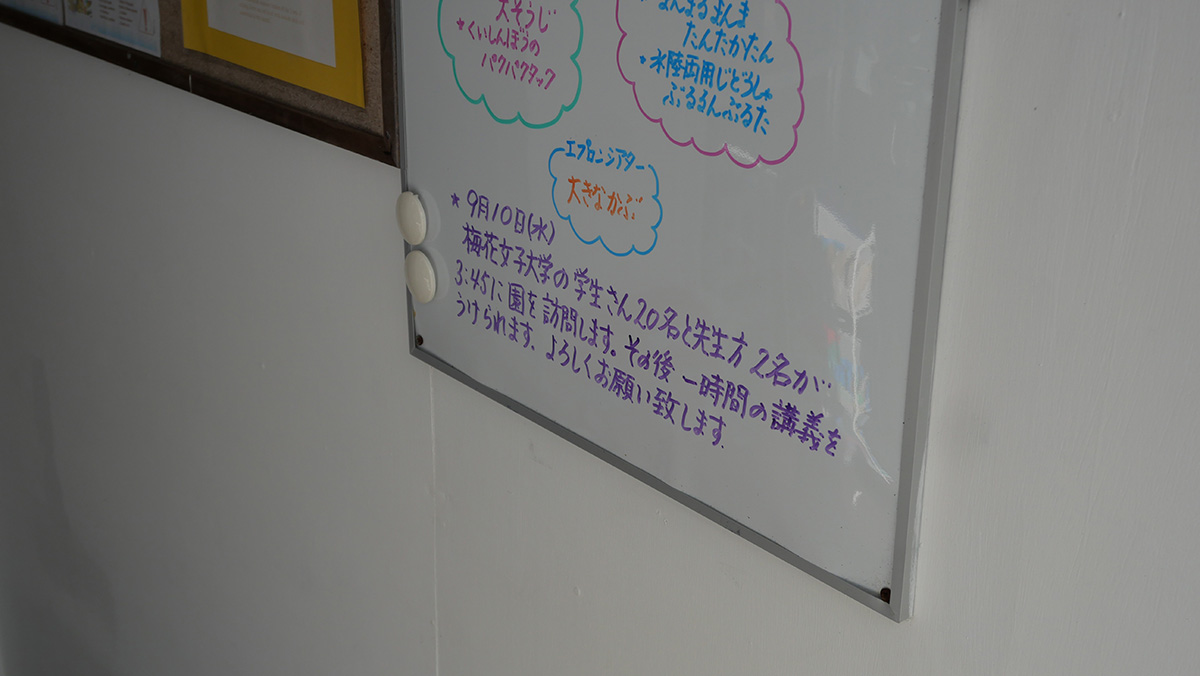 大そうじ
★くいしんぼうの
パクパクタック
まんまるまんま
たんたかたん
★水陸両用じどうしゃ
ぶるるんぶるた
エプロンシアター
大きなかぶ
★9月10日(水)
梅花女子大学の学生さん20名と先生方2名が
3:45に園を訪問します。その後一時間の講義を
うけられます、よろしくお願い致します.